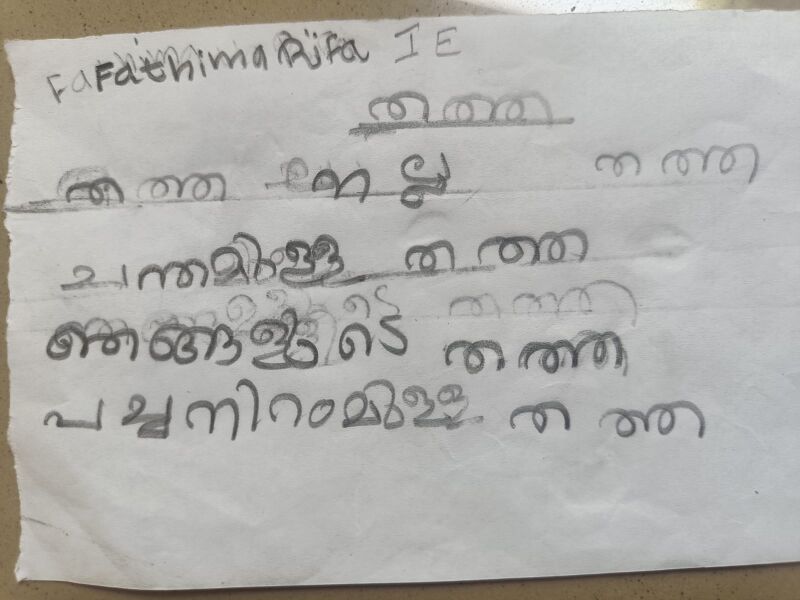 Fathima Rifa I E
തത്ത
തത്ത നല്ല തത്ത
ചന്തമുള്ള തത്ത
ഞങ്ങളുടെ തത്ത
പച്ചനിറംമുള്ള തത്ത